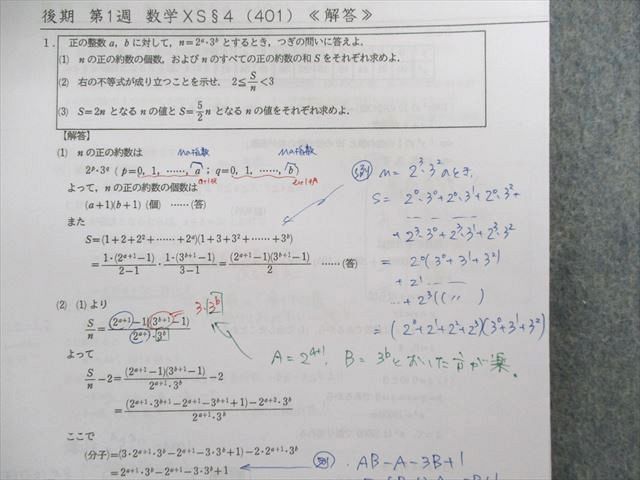 後期 第1週 数学XS§4 (401) ≪解答≫
1. 正の整数a, bに対して, n=2^a・3^bとするとき, つぎの問いに答えよ.
(1) nの正の約数の個数, およびnのすべての正の約数の和Sをそれぞれ求めよ.
(2) 右の不等式が成り立つことを示せ. 2≦S/n<3
(3) S=2nとなるnの値とS=5/2nとなるnの値をそれぞれ求めよ.
【解答】
(1) nの正の約数は
2^p・3^q (p=0, 1, ……, a ; q=0, 1, ……, b)
よって, nの正の約数の個数は
(a+1)(b+1) (個) ……(答)
また
S=(1+2+2^2+……+2^a)(1+3+3^2+……+3^b)
=1・(2^{a+1}-1)/2-1・1・(3^{b+1}-1)/3-1=(2^{a+1}-1)(3^{b+1}-1)/2 ……(答)
n=2^3・3^2のとき.
S= 2^0・3^0+2^0・3^1+2^0・3^2+
+2^3・3^0+2^3・3^1+2^3・3^2
= 2^0(3^0+3^1+3^2)
+2^1 ……
…+2^3( 〃 )
= (2^0+2^1+2^2+2^3)(3^0+3^1+3^2)
(2) (1)より
3・3^b
S/n=(2^{a+1}-1)(3^{b+1}-1)/2^{a+1}・3^b
A=2^{a+1}, B=3^bとおいた方が楽.
よって
S/n-2=(2^{a+1}-1)(3^{b+1}-1)/2^{a+1}・3^b-2
=(2^{a+1}・3^{b+1}-2^{a+1}-3^{b+1}+1)-2^{a+2}・3^b/2^{a+1}・3^b
ここで
(分子)=(3・2^{a+1}・3^b-2^{a+1}-3・3^b+1)-2・2^{a+1}・3^b
=2^{a+1}・3^b-2^{a+1}-3・3^b+1
AB-A-3B+1